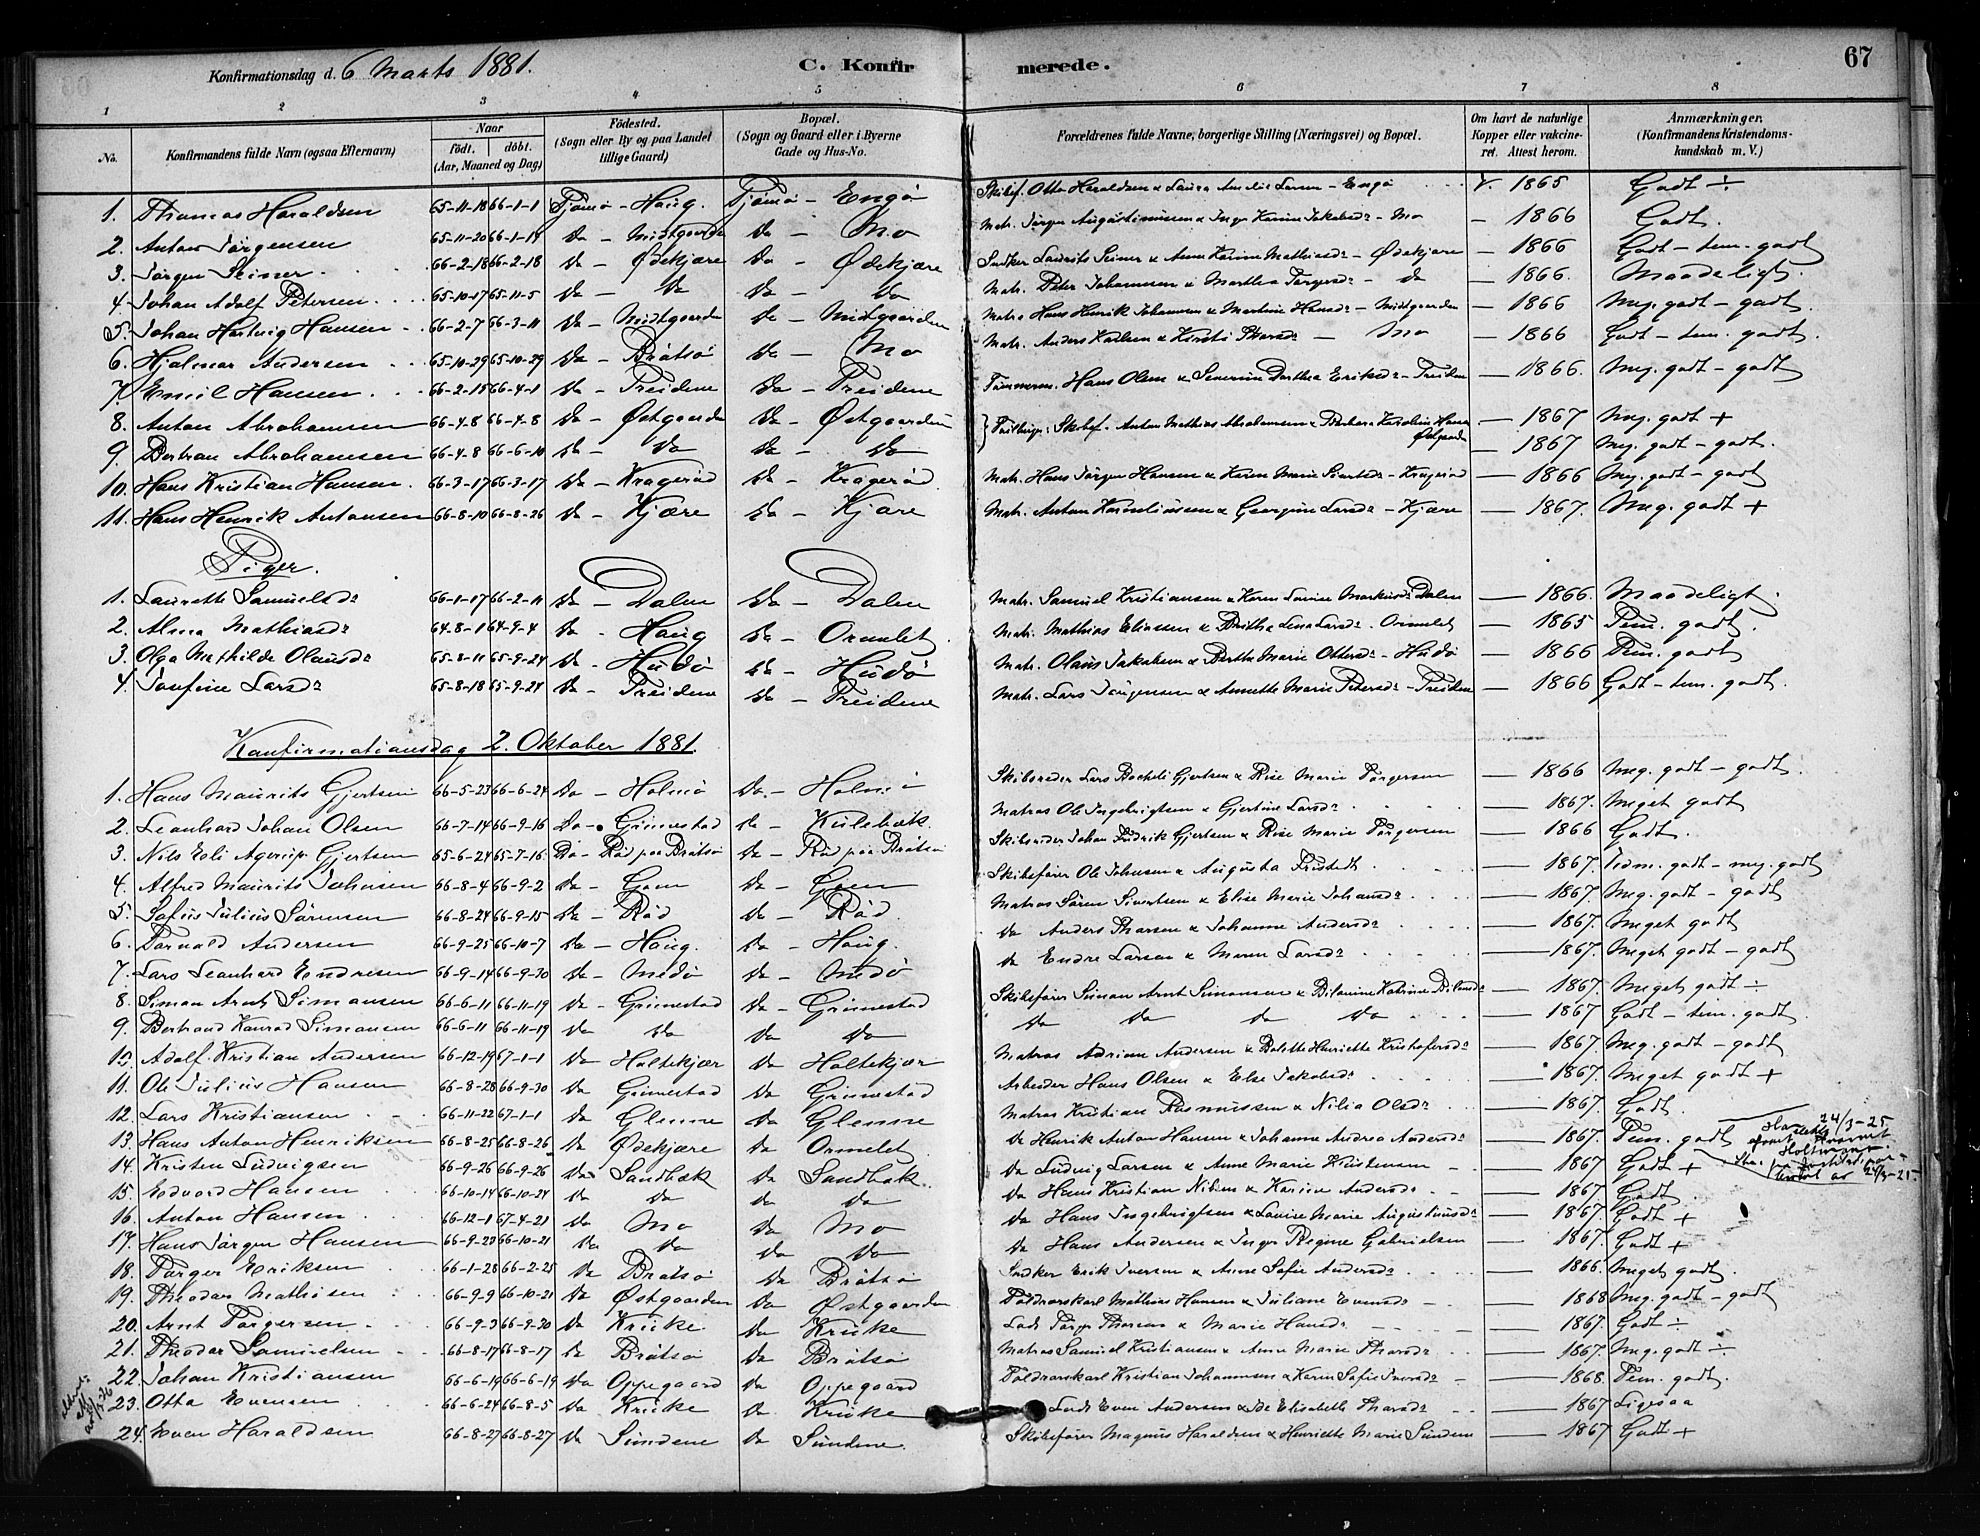 Konfirmationsdag d. 6 Marts 1881. C. Konfirmerede. 67
1 2 3 4 5 6 7 8
No. Konfirmandens fulde Navn (ogsaa Efternavn) Naar født. døbt. (Aar, Maaned og Dag) Fødested. (Sogn eller By og paa Landet tillige Gaard) Bopæl. (Sogn og Gaard eller i Byerne Gade og Hus-No. Forældrenes fulde Navne, borgerlige Stilling (Næringsvei) og Bopæl. Om havt de naturlige Kopper eller vakcineret. Attest herom. Anmærkninger. (Konfirmandens Kristendomskundskab m. V.)
1. Thomas Haraldsen 65-11-18 66-1-1 Tjømø - Haug. Tjømø - Engø Skibsf. Otto Haraldsen & Laura Amalie Larsen - Engø V. 1865 Godt ÷
2. Anton Jørgensen 65-11-20 66-1-14 do - Midtgaarden do - Mo Matr. Jørgen Augustinussen & Inger Karine Jakobsdr - Mo — 1866 Godt.
3. Jørgen Seiner 66-2-18 66-2-18 do - Ødekjære do - Ødekjære Sndker Laurits Seiner & Anne Karine Mathiasdr - Ødekjære — 1866 Godt - tem. godt
4. Johan Adolf Petersen 65-10-17 65-11-5 do - do do - do Matr. Peter Johannsen & Marthea Torgersdr - do — 1866. Maadeligt.
5. Johan Hartvig Hansen 66-2-7 66-3-11 do - Midtgaarden do - Midtgaarden Matr. Hans Henrik Johannsen & Martine Hansdr - Midtgaarden — 1866 Meg. godt - godt
6. Hjalmar Andersen 65-10-29 65-10-29 do - Bråtsø do - Mo Matr. Anders Karlsen & Kirsti Thorsdr — Mo — 1866 Godt - tem. godt.
7. Emil Hansen 66-2-15 66-4-1 do - Treidene do - Treidene Tømmerm. Hans Olsen & Severine Dorthea Eriksdr - Treidene — 1866. Meg. godt - godt
8. Anton Abrahamsen 66-4-8 66-4-8 do - Østgaarden do - Østgaarden } Tvillinger: Skibsf. Anton Mathias Abrahamsen & Barbara Karoline Hansen Østgaarden — 1867 Meg. godt +
9. Bertran Abrahamsen 66-4-8 66-6-10 do - do do - do — 1867 Meg. godt - godt.
10. Hans Kristian Hansen. 66-3-17 66-3-17 do - Kragerød do - Kragerød. Matr. Hans Jørgen Hansen & Karen Marie Sivertsdr - Kragerød — 1866 Meg. godt - godt
11. Hans Henrik Antonsen 66-8-10 66-8-26 do - Kjære do - Kjære Matr. Anton Korneliussen & Georgine Larsdr - Kjære — 1867. Meg. godt +
Piger.
1. Laurette Samuelsdr 66-1-17 66-2-11 do - Dalen do - Dalen Matr. Samuel Kristiansen & Karen Lovise Markusdr Dalen — 1866. Maadeligt.
2. Alma Mathiasdr 64-8-1 64-9-4 do - Haug do - Ormelet. Matr. Mathias Eliassen & Lena Larsdr. Ormelet — 1865 Tem. godt.
3. Olga Mathilde Olausdr 65-8-11 65-9-24 do - Hudø do - Hudø Matr. Olaus Jakobsen & Berthe Marie Ottersdr - Hudø — 1866 Tem. godt
4. Josefine Larsdr 65-8-18 65-9-24 do - Treidene do - Treidene Matr. Lars Jørgensen & Annette Marie Petersdr - Treidene — 1866 Godt - tem. godt.
Konfirmationsdag 2. Oktober 1881.
1. Hans Maurits Gjertsen 66-5-23 66-6-24 do - Holmø do. - Holmø Skibsreder Lars Bacheli Gjertsen & Rise Marie Torgersen — 1866 Meg. godt - godt.
2. Leonhard Johan Olsen 66-7-14 66-9-16 Do - Grimestad do - Kulebæk. Matros Ole Ingebrigtsen & Gjertine Larsdr — 1867. Meget godt
3. Nils Eli Agerup Gjertsen 65-6-24 65-7-16 Do - Rød paa Bråtsø do - Rød paa Bråtsø Skibsreder Johan Fredrik Gjertsen & Rise Marie Torgersen — 1866 Godt.
4. Alfred Maurits Johnsen 66-8-4 66-9-2 do - Goen do - Goen Skibsfører Ole Johnsen & Augusta — 1867. Tem. godt - meg. godt
5. Sofus Julius Sørensen 66-8-24 66-9-15 do - Rød do - Rød. Matros Søren Sivertsen & Elise Marie Johansdr — 1867 Meg. godt - godt.
6. Torvald Andersen 66-9-25 66-10-7 do - Haug. do - Haug. do Anders Thorsen & Johanne Andersdr — 1867 Meget godt
7. Lars Leonhard Endresen 66-9-14 66-9-30 do - Medø do - Medø do Endre Larsen & Maren Larsdr — 1867. Meget godt - godt
8. Simon Arnt Simonsen 66-6-11 66-11-19 do - Grimestad do - Grimestad Skibsfører Simon Arnt Simonsen & Katrine — 1867. Meget godt ÷
9. Bertrand Konrad Simonsen 66-6-11 66-11-19 do do do do do do do do — 1867 Godt - tem. godt.
10. Adolf Kristian Andersen 66-12-19 67-1-1 do Holtekjær do Holtekjær Matros Adrian Andersen & Bolette Henriette Kristofersdr — 1867. Meg. godt - godt
11. Ole Julius Hansen 66-8-28 66-9-30 do Grimestad do Grimestad Arbeider Hans Olsen & Else Jakobsdr — 1867. Meget godt +
12. Lars Kristiansen 66-11-22 67-1-1 do Glenne do Glenne Matros Kristian Rasmussen & Nilia Olsdr — 1867. Godt.
13. Hans Anton Henriksen 66-8-25 66-8-26 do Ødekjære do Ormelet. do Henrik Anton Hansen & Johanne Andrea Andersdr — 1867. Tem. godt 24/3-25
14. Kristen Ludvigsen 66-9-26 66-9-26 do Sandbæk do Sandbæk. do Ludvig Larsen & Anne Marie Kristensen — 1867 Godt +
15. Edvard Hansen 66-10-14 66-10-24 do do do do do Hans Kristian Nilsen & Karine Andersdr — 1867. Godt.
16. Anton Hansen 66-12-1 67-4-21 do Mo do Mo do Hans Ingebrigtsen & Lovise Marie Augustinusdr — 1867 Godt +
17. Hans Jørgen Hansen 66-9-23 66-10-21 do do do do do Hans Andersen & Inger Regine Gabrielsen — 1867 Godt +
18. Torger Eriksen 66-1-28 66-2-25 do Bråtsø do Bråtsø Sndker Erik Iversen & Anne Sofie Andersdr — 1866. Meget godt.
19. Theodor Mathisen 66-9-9 66-10-21 do Østgaarden do Østgaarden Føldrarskarl Mathias Hansen & Juliane Evensdr — 1868 Meg. godt - godt
20. Arnt Torgersen 66-9-3 66-9-30 do Kruke do Kruke Lods Torger Thorsen & Marie Hansdr — 1867. Godt ÷
21. Theodor Samuelsen 66-8-17 66-8-17 do Bråtsø do Bråtsø Matros Samuel Kristiansen & Anne Marie Thorsdr — 1867. Meg. godt ÷
22. Johan Kristiansen 66-6-19 66-6-19 do Oppegaard do Oppegaard Føldrarskarl Kristian Johannsen & Karen Sofie Iversdr — 1868. Tem. godt.
23. Otto Evensen 66-6-24 66-8-5 do Kruke do Kruke Lods Even Andersen & Ide Elisabeth Thorsdr — 1867 Ligesaa
24. Even Haraldsen 66-8-27 66-8-27 do Sundene do Sundene. Skibsfører Magnus Haraldsen & Henriette Marie Sundene — 1867 Godt +